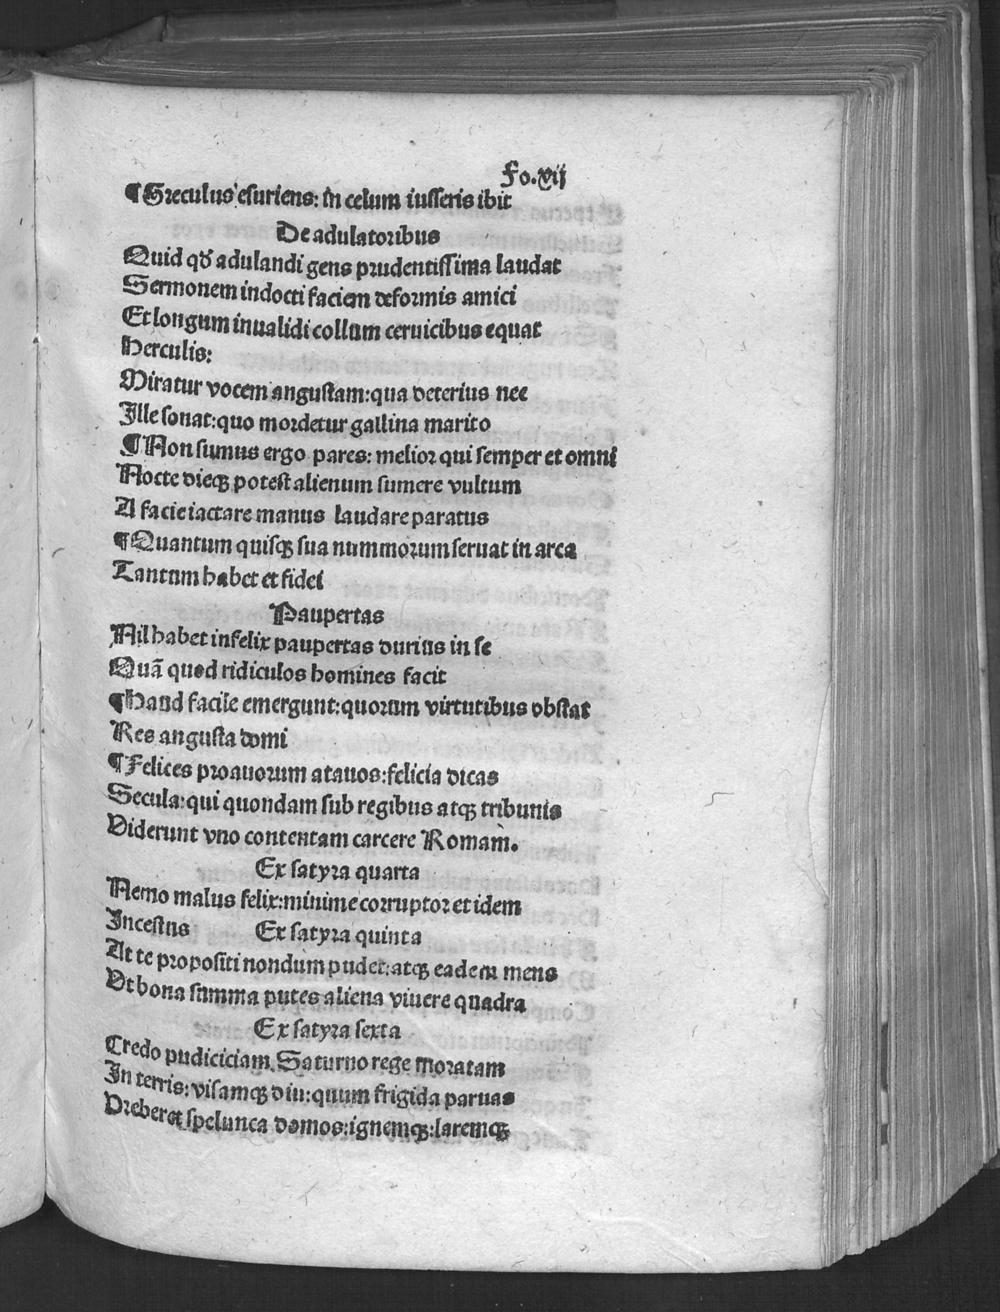 Fo.xij
¶Greculus esuriens: in celum iusseris ibit
De adulatoribus
Quid qď adulandi gens prudentissima laudat
Sermonem indocti faciem deformis amici
Et longum inualidi collum ceruicibus equat
Herculis:
Miratur vocem angustam:qua deterius nec
Ille sonat:quo mordetur gallina marito
¶Non sumus ergo pares: melior qui semper et omni
Nocte dieqꝫ potest alienum sumere vultum
A facie iactare manus laudare paratus
¶Quantum quisqꝫ sua nummorum seruat in arca
Tantum habet et fidei
Paupertas
Nil habet infelix paupertas durius in se
Quã quod ridiculos homines facit
¶Haud facile emergunt:quorum virtutibus obstat
Res angusta domi
¶Felices proauorum atauos:felicia dicas
Secula:qui quondam sub regibus atqꝫ tribunis
Viderunt vno contentam carcere Romam.
Ex satyra quarta
Nemo malus felix:minime corruptor et idem
Incestus Ex satyra quinta
At te propositi nondum pudet:atqꝫ eadem mens
Vt bona summa putes aliena viuere quadra
Ex satyra sexta
Credo pudiciciam Saturno rege moratam
In terris:visamqꝫ diu:quum frigida paruas
Preberet spelunca domos:ignemqꝫ:laremqꝫ